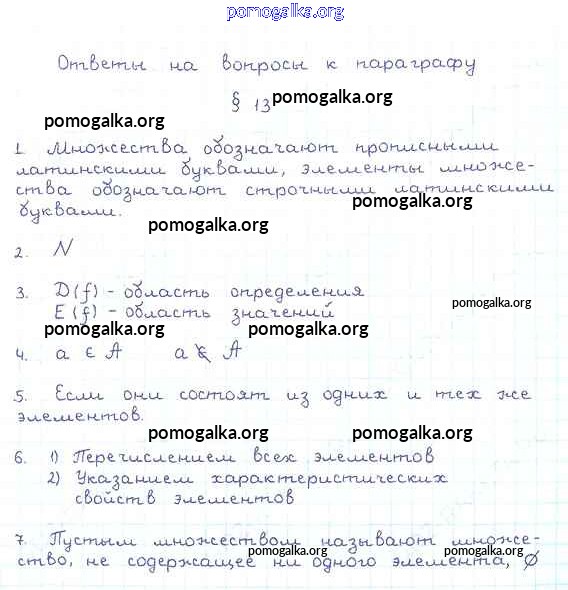 pomogalka.org
Ответы на вопросы к параграфу
§ 13 pomogalka.org
pomogalka.org
1 Множества обозначают прописными
латинскими буквами, элементы множе-
ства обозначают строчными латинскими
pomogalka.org
буквами.
pomogalka.org
2. N
3. D(f) - область определения
pomogalka.org
E(f) - область значений
pomogalka.org pomogalka.org
4. a ∈ A a ∉ A
5. Если они состоят из одних и тех же
элементов.
pomogalka.org pomogalka.org
6. 1) Перечислением всех элементов
2) Указанием характеристических
свойств элементов
7. Пустым множеством называют множе-
pomogalka.org pomogalka.org
ство, не содержащее ни одного элемента, ∅